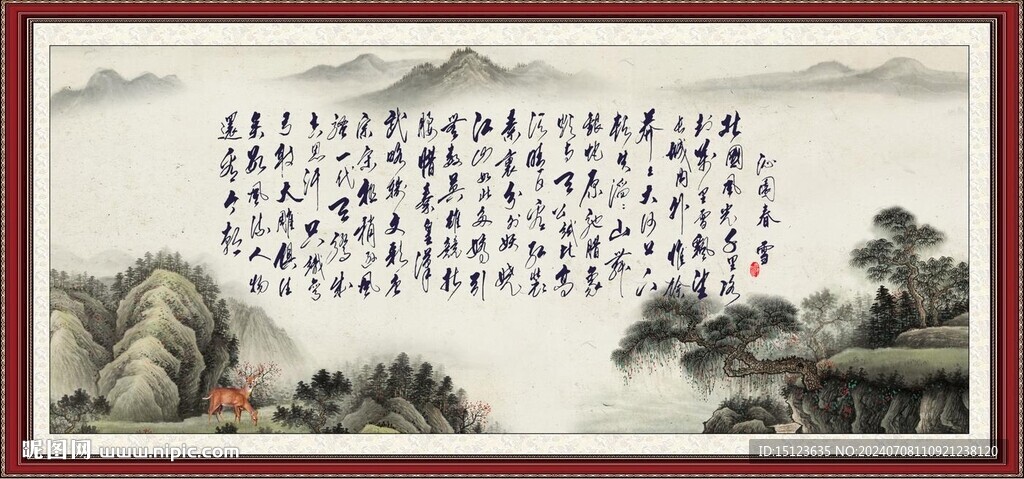 沁園春 雪
北國風光千里冰
封萬里雪飄望
长城内外惟餘
莽々大河上下
頓失滔々山舞
銀蛇原驰腊象
欲与天公試比高
須晴日看红裝
素裹分外妖嬈
江山如此多嬌引
無數英雄競折
腰惜秦皇漢
武略輸文彩唐
宗宋祖稍遜風
騷一代天驕成
吉思汗只識彎
弓射大雕俱往
矣數風流人物
還看今朝
昵图网 www.nipic.com
ID:15123635 NO:20240708110921238120